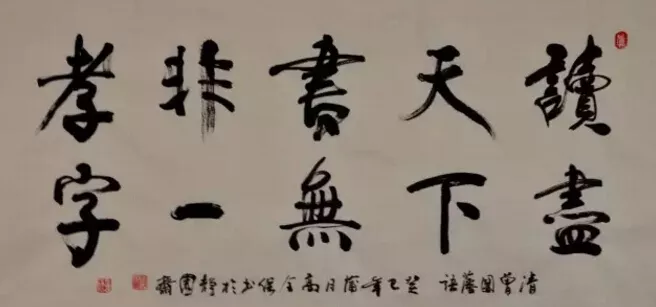 讀盡
天下
書無
非一
孝字
清曾國藩語 癸巳年蒲月高全保书於静園齋